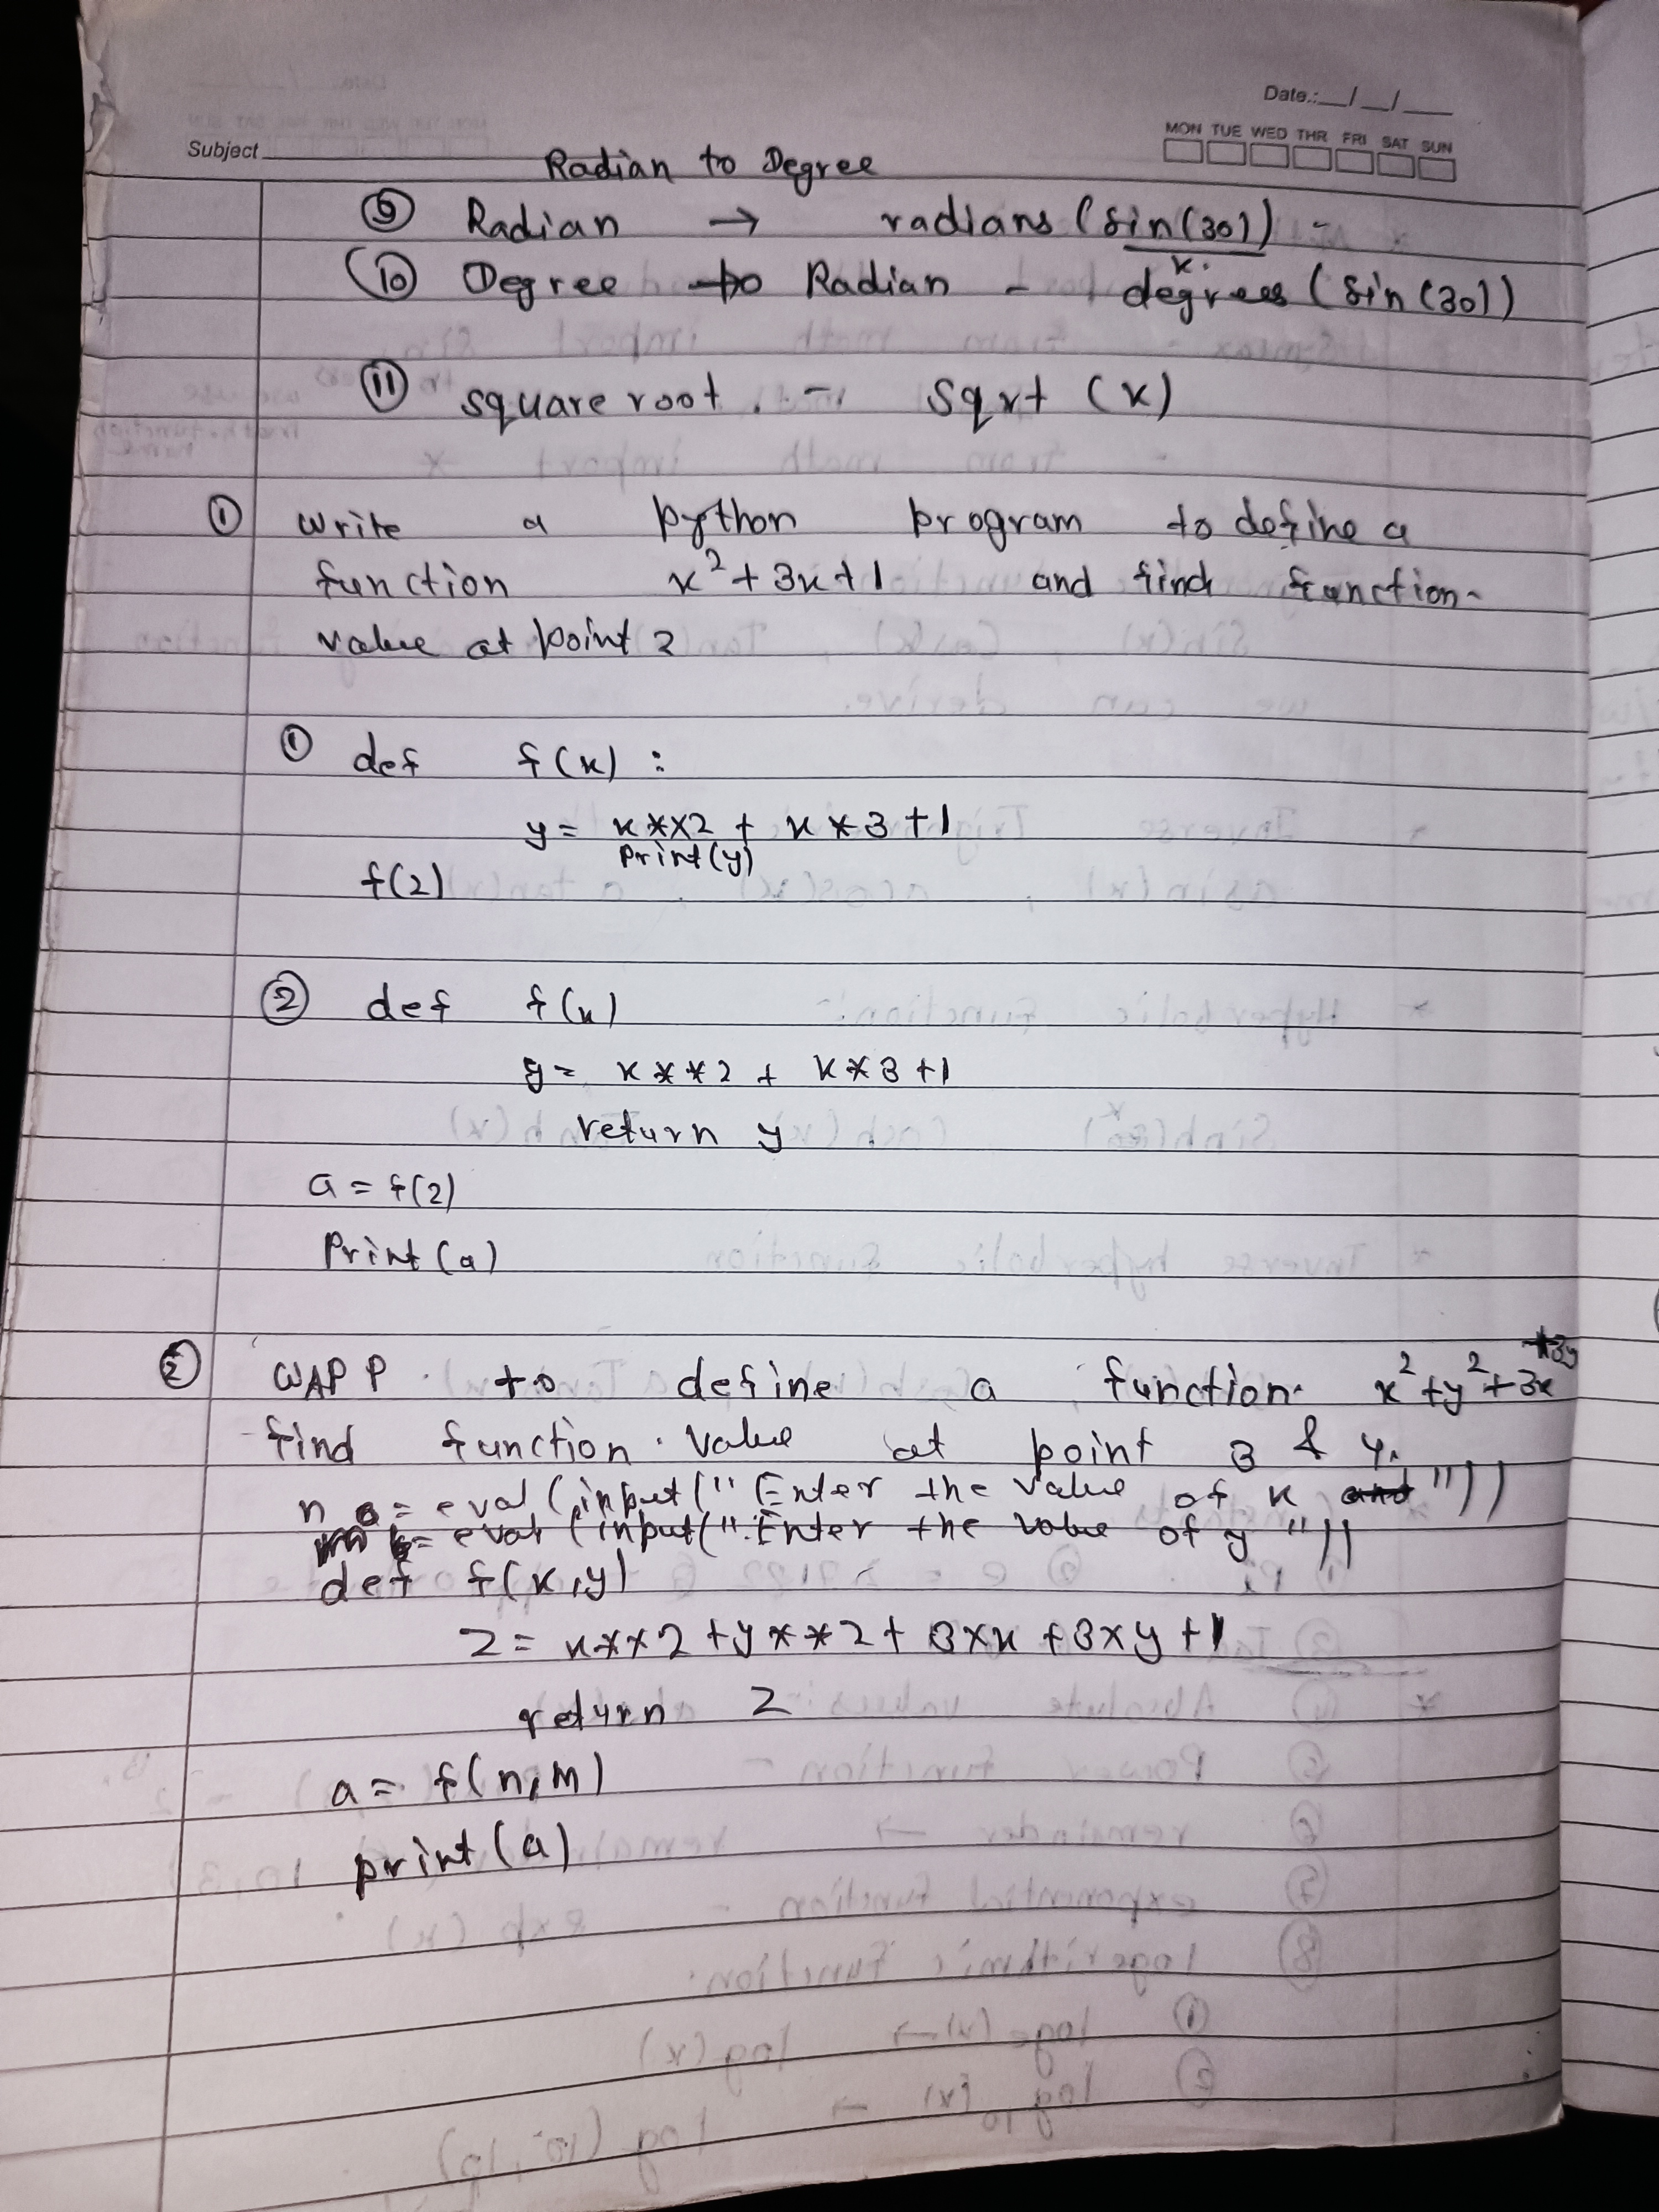 Date.:__/__/__
MON TUE WED THR FRI SAT SUN
Subject
Radian to Degree
⑨ Radian → radians (sin(30)) -
x.
⑩ Degree to Radian - degrees (sin(30))
⑪ square root. - sqrt (x)
① write a python program to define a
function x²+3x+1 and find function
value at point 2
① def f(x) :
y= x**2 + x*3+1
print(y)
f(2)
② def f(x)
y= x**2 + x*3+1
return y
a = f(2)
Print (a)
② WAPP to define a function x²+y²+3x+3y
find function value at point 3 & 4.
n = eval (input(" Enter the value of x and "))
= eval (input(" Enter the value of y "))
def f(x,y)
z= x**2+y**2+3×x+3×y+1
return z
a = f(n,m)
print (a)